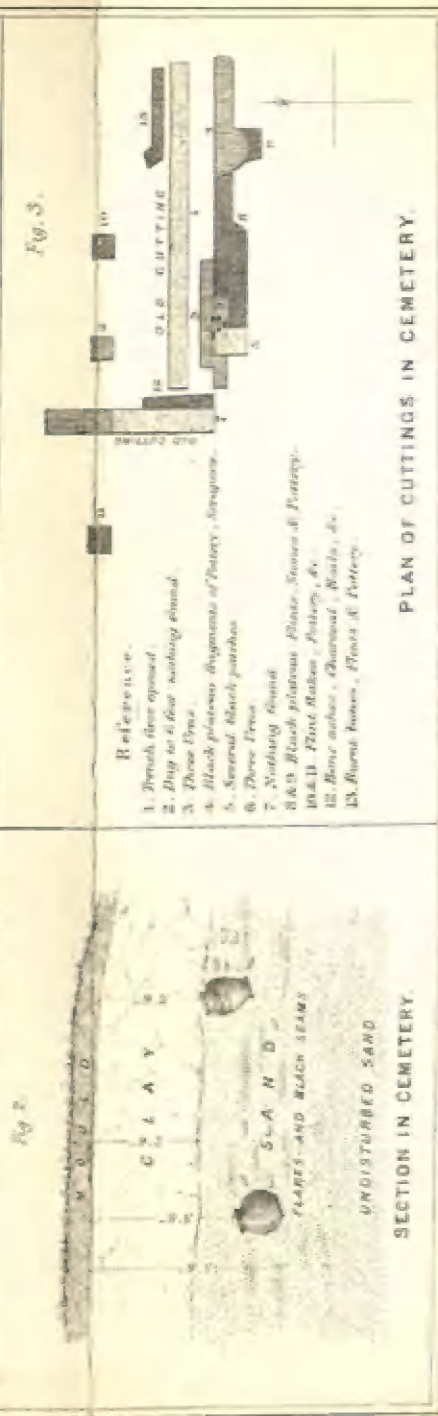 Fig. 2.
MOULD
CLAY
SAND
FLAKES AND BLACK SEAMS
UNDISTURBED SAND
SECTION IN CEMETERY.
Fig. 3.
Reference.
1. Trench first opened.
2. Dug to 6 feet nothing found.
3. Three Urns
4. Black plateau fragments of Pottery, Scrapers.
5. Several black patches
6. Three Urns.
7. Nothing found
8 & 9 Black plateau Flints, Stones & Pottery.
10 & 11 Flint flakes, Pottery, &c.
12. Bone ashes, Charcoal, Nails, &c.
13. Burnt bones, Flints & Pottery.
OLD CUTTING
OLD CUTTING
PLAN OF CUTTINGS IN CEMETERY.